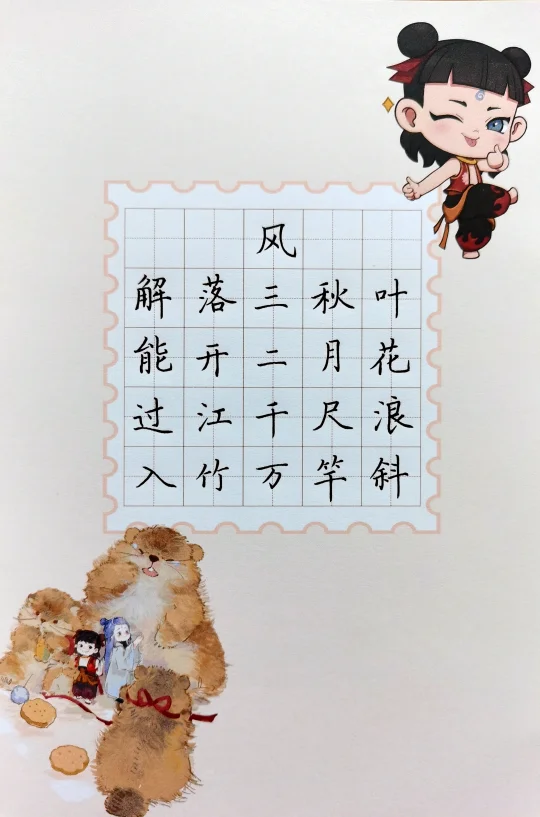 风
解落三秋叶
能开二月花
过江千尺浪
入竹万竿斜